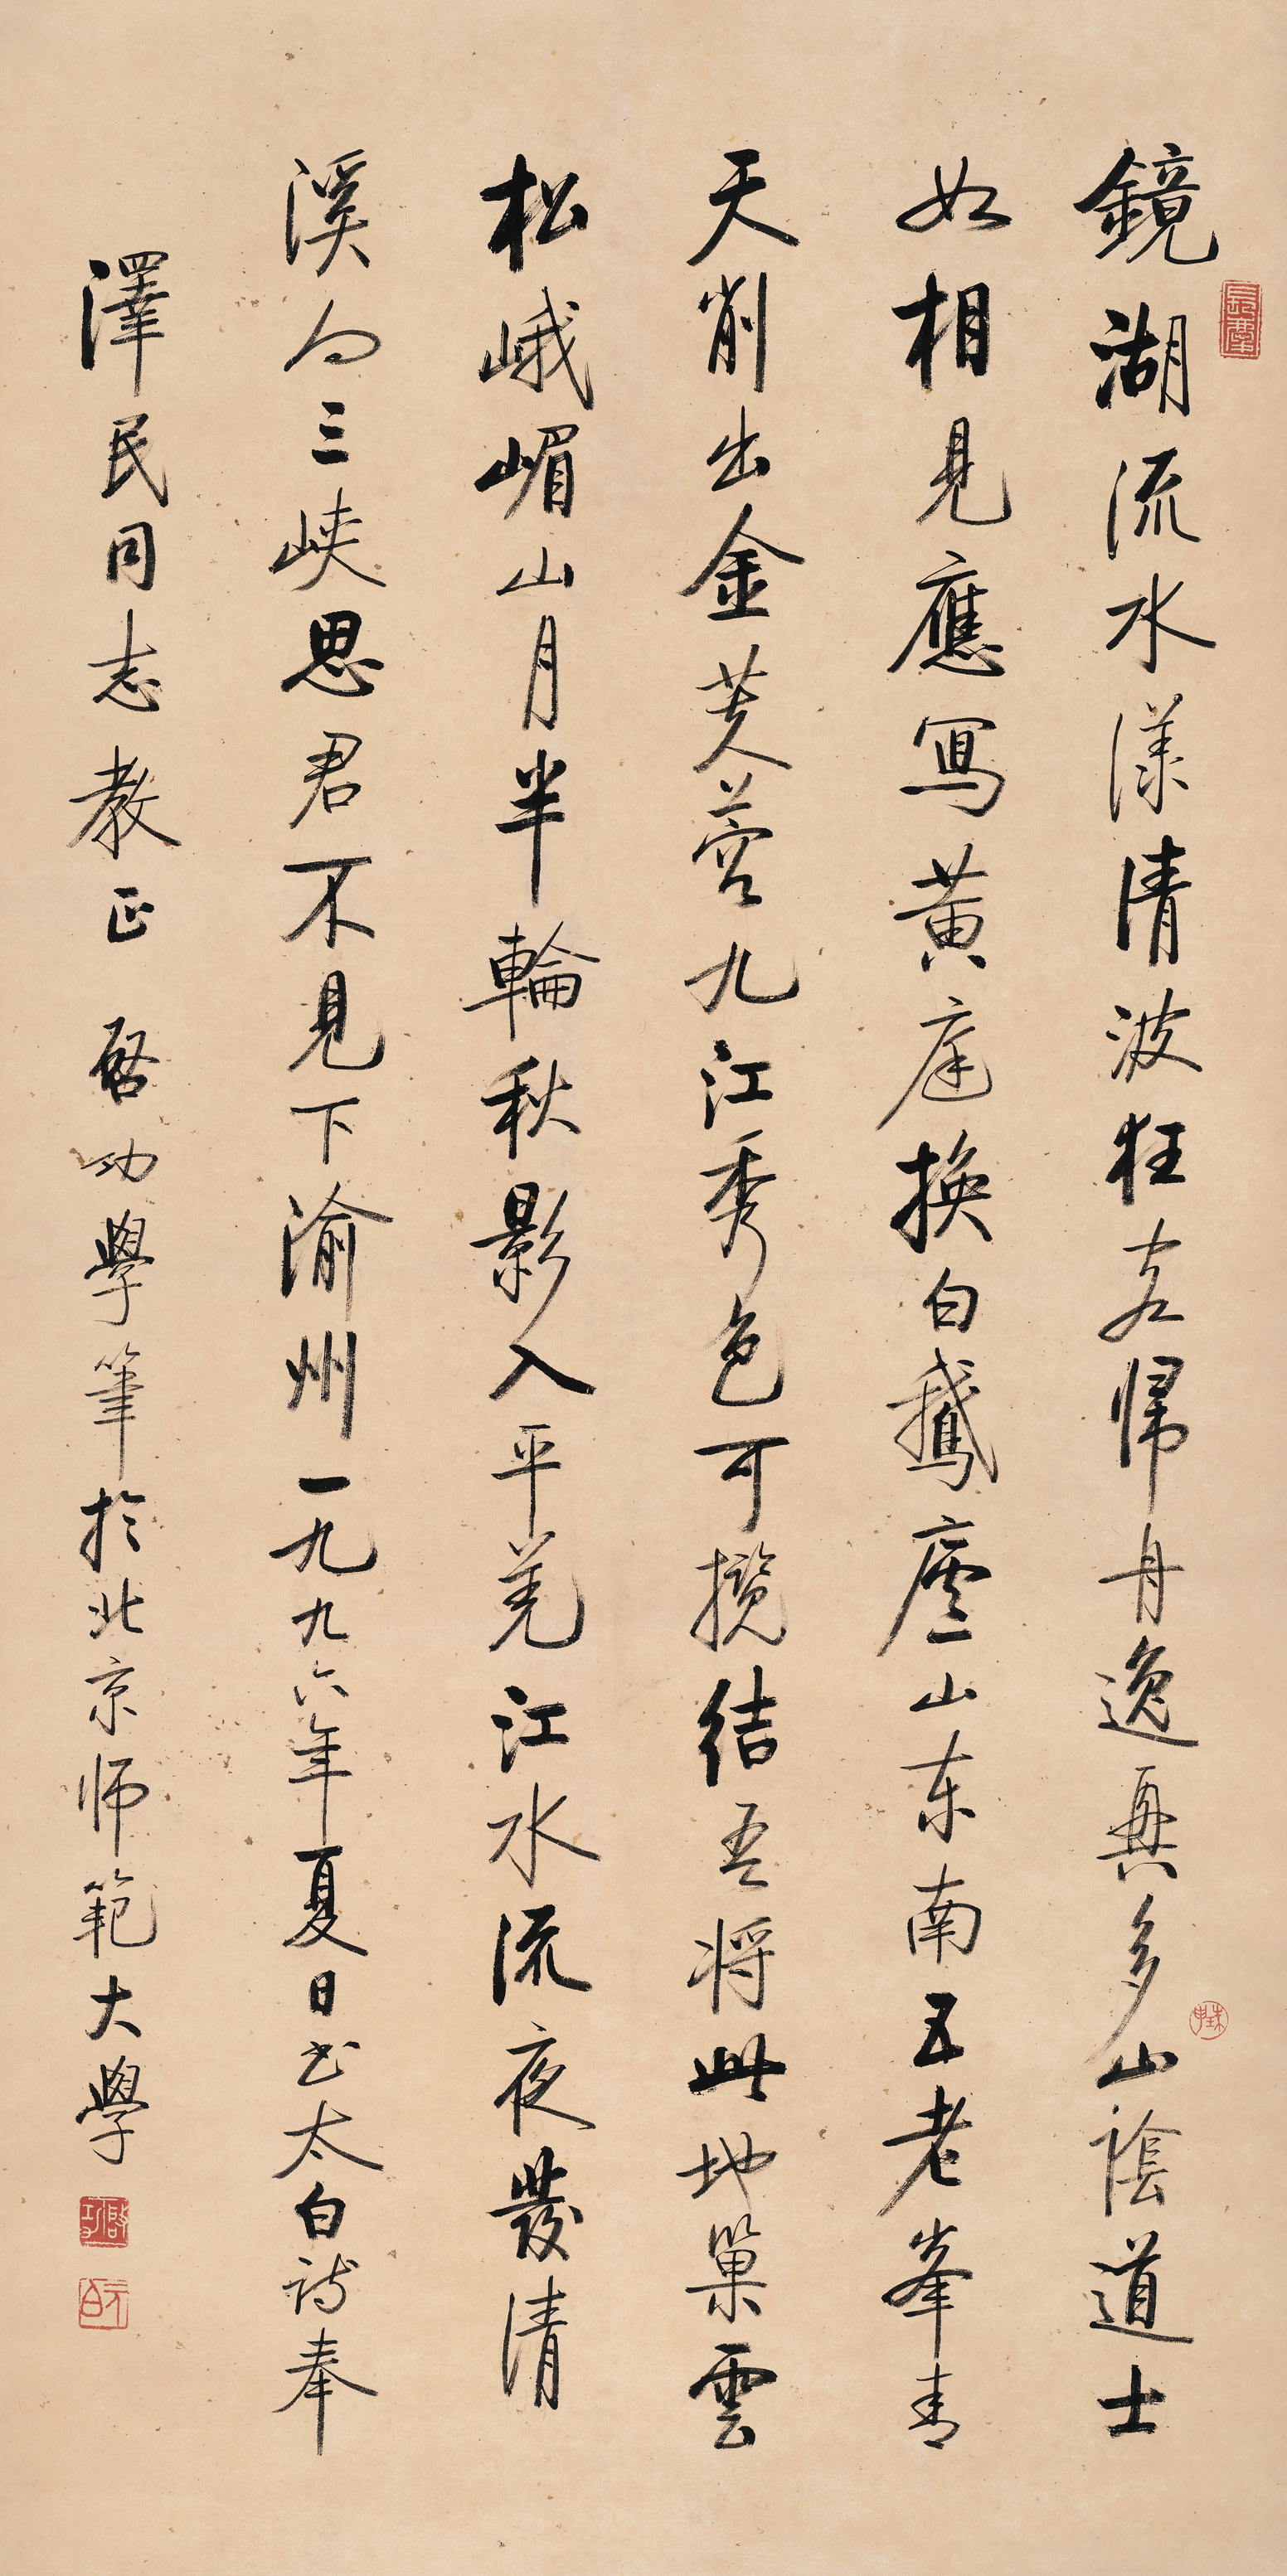 鏡湖流水漾清波狂客歸舟逸興多山陰道士
如相見應寫黃庭換白鵝廬山东南五老峯青
天削出金芙蓉九江秀色可攬結吾将此地巢雲
松峨嵋山月半輪秋影入平羌江水流夜發清
溪向三峽思君不見下渝州一九九六年夏日书太白詩奉
澤民同志教正 啓功學筆於北京师範大學
啓功
元白